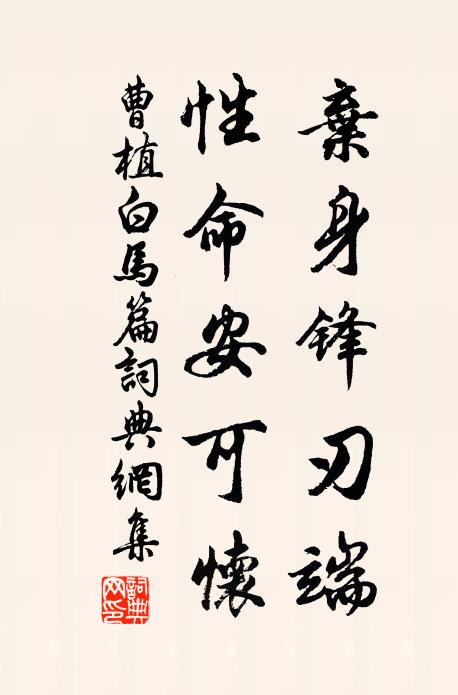 棄身鋒刃端
性命安可懷
曹植白馬篇詞典網集
詞典網印